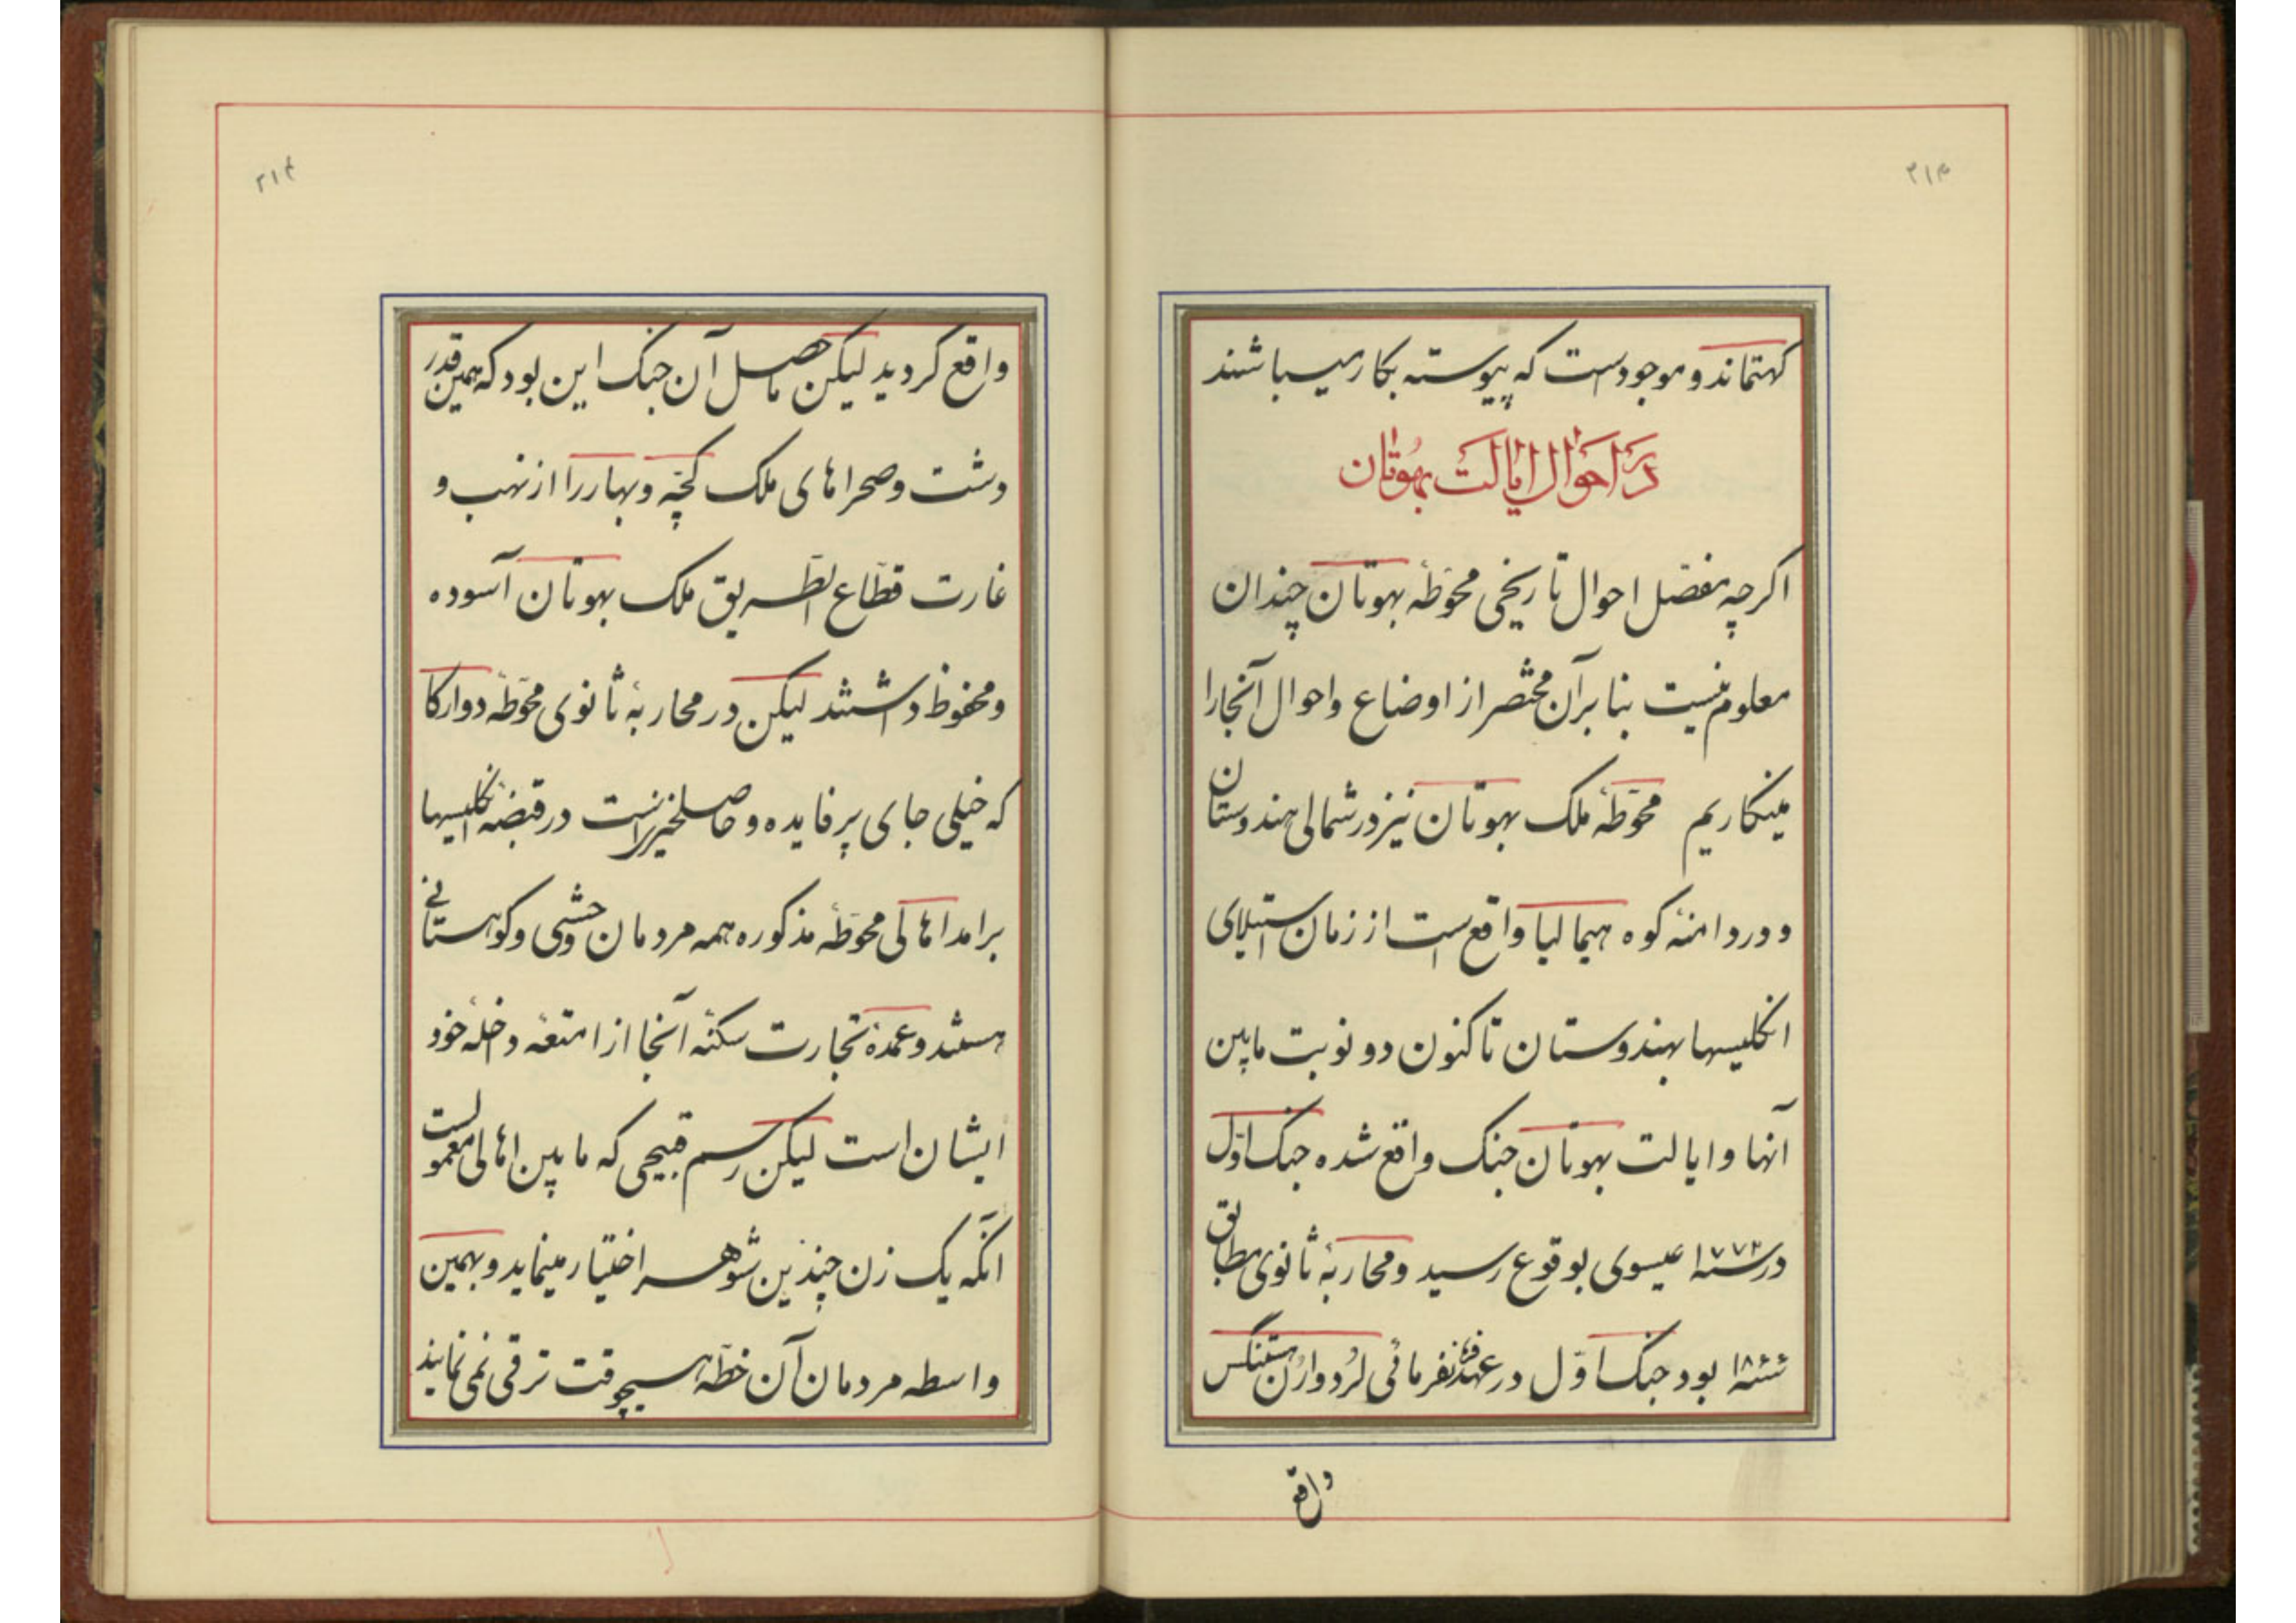 ۳۱۳
کهتماندو موجودست که پیوسته بکار میباشند
در احوال ایالت بهوتان
اکرچه مفصّل احوال تاریخی محوّطهٔ بهوتان چندان
معلوم نیست بنا برآن مختصر از اوضاع واحوال آنجارا
مینکاریم محوّطهٔ ملک بهوتان نیز در شمالی هندوستان
و در دامنهٔ کوه هیمالیا واقع است از زمان استیلای
انکلیسها بهندوستان تاکنون دو نوبت مابین
آنها و ایالت بهوتان جنک واقع شده جنک اوّل
در سنهٔ ۱۷۷۲ عیسوی بوقوع رسید و محاربهٔ ثانوی مطابق
سنهٔ بود جنک اوّل در عهد فرمانفرمائی لُرد وارُن هستنکس
واقع
۳۱۴
واقع کردید لیکن ماحصل آن جنک این بود که همین قدر
دشت و صحراهای ملک کچّه و بهار را از نهب و
غارت قطّاع الطّریق ملک بهوتان آسوده
ومحفوظ داشتند لیکن در محاربهٔ ثانوی محوّطهٔ دوارکا
که خیلی جای پر فایده و حاصلخیز است در قبضهٔ انکلیسها
برامد اهالی محوّطهٔ مذکوره همه مردمان وحشی و کوهستانی
هستند و عمدهٔ تجارت سکنهٔ آنجا از امتعهٔ داخلهٔ خود
ایشان است لیکن رسم قبیحی که مابین اهالی معمولست
آنکه یک زن چندین شوهر اختیار مینماید و بهمین
واسطه مردمان آن خطّه هیچوقت ترقی نمی نمایند